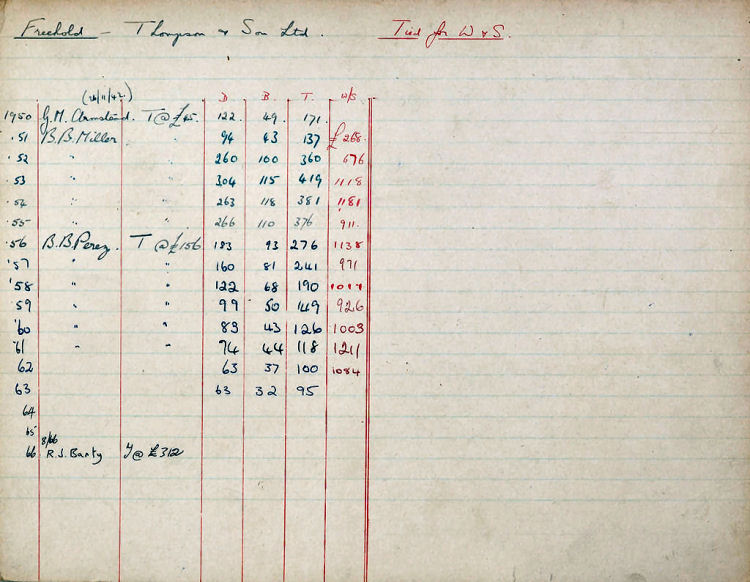 Freehold - Thompson & Son Ltd. Tied for W & S.
D. B. T. W/S
1950 G.M. T @ £45. 122. 49. 171.
'51 B.B. Miller " 94 43 137 £ 268.
'52 " " 260 100 360 676
'53 " " 304 115 419 1118
'54 " " 263 118 381 1181
'55 " " 266 110 376 911.
'56 B.B. Perez. T @ £156 183 93 276 1138
'57 " " 160 81 241 971
'58 " " 122 68 190
'59 " " 99 50 149 926
'60 " " 83 43 126 1003
'61 " " 74 44 118 1211
62 63 37 100 1084
63 63 32 95
64
65
8/66
66 R.J. Banty Y @ £312